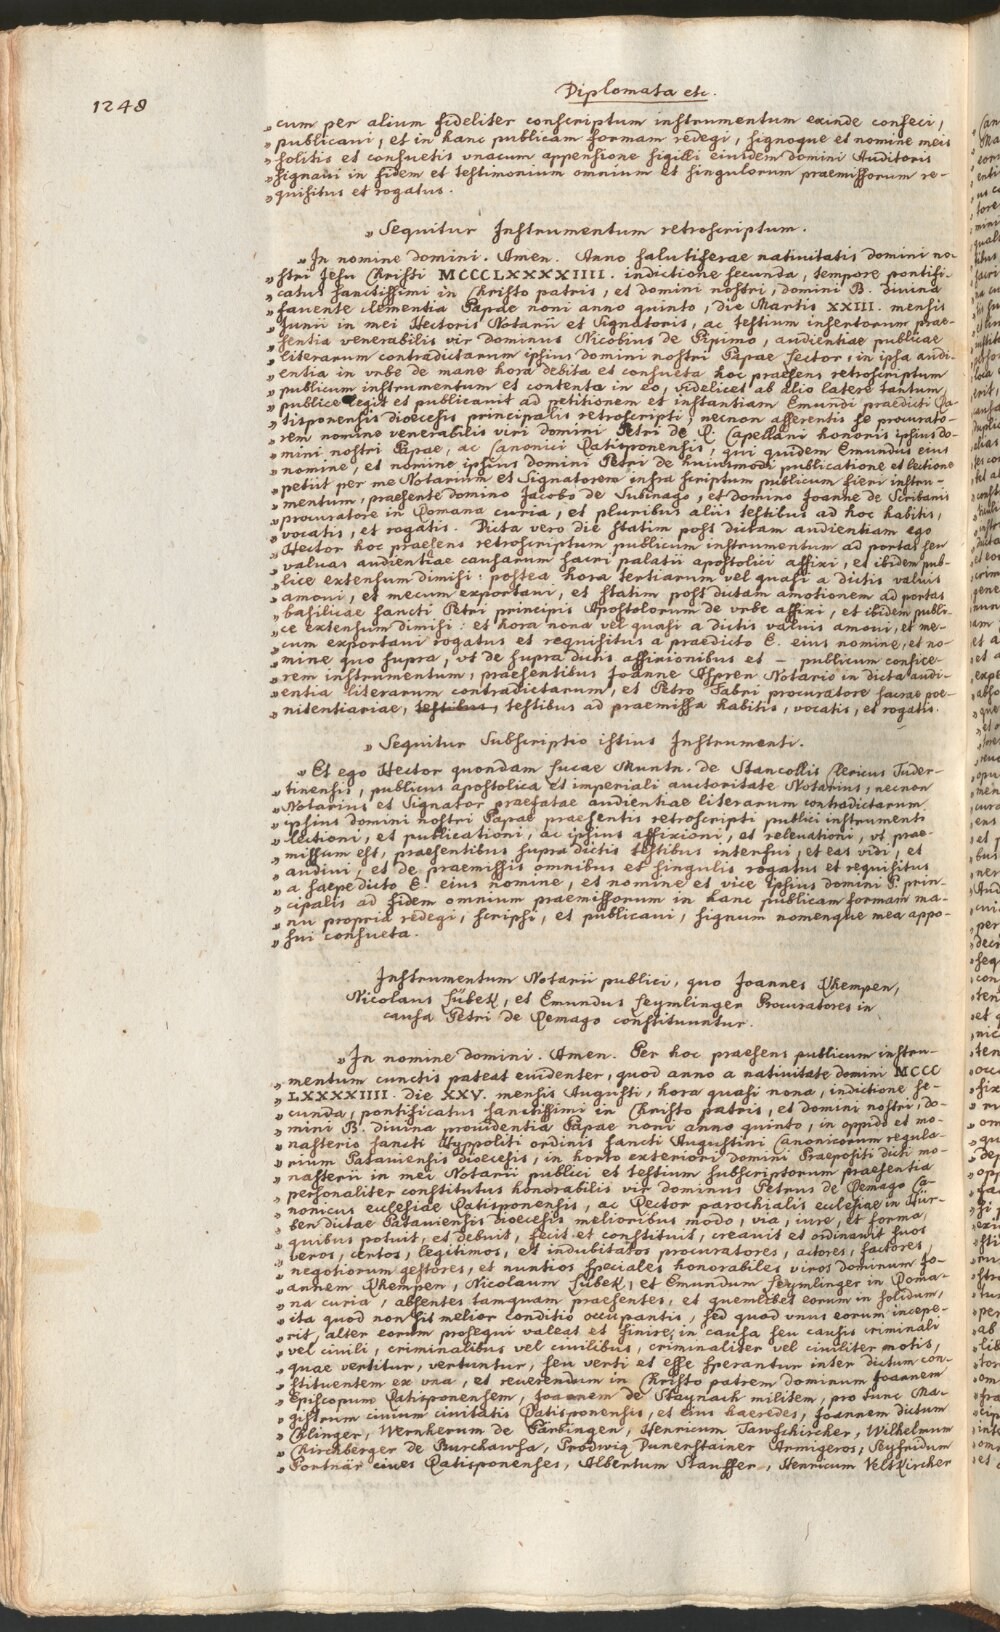 1248
Diplomata etc.
„cum per alium fideliter conscriptum instrumentum exinde confeci,
„publicavi, et in hanc publicam formam redegi, signoque et nomine meis
„solitis et consuetis vnacum appensione sigilli eiusdem domini Auditoris
„signavi in fidem et testimonium omnium et singulorum praemissorum re-
„quisitus et rogatus.
„Sequitur Instrumentum retroscriptum.
„In nomine domini. Amen. Anno salutiferae nativitatis domini no-
„stri Jesu Christi MCCCLXXXXIIII. indictione secunda, tempore pontifi-
„catus sanctissimi in Christo patris, et domini nostri, domini B. divina
„favente clementia Papae noni anno quinto, die Martis XXIII. mensis
„Junii in mei Hectoris Notarii et Signatoris, ac testium insertorum prae-
„sentia venerabilis vir dominus Nicobius de Pipimo, audientiae publicae
„literarum contradictarum ipsius domini nostri Papae Lector, in ipsa audi-
„entia in vrbe de mane hora debita et consueta hoc praesens retroscriptum
„publicum instrumentum et contenta in eo, videlicet ab alio latere tantum,
„publice legit et publicauit ad petitionem et instantiam Emundi praedicti Ra-
„tisponensis dioecesis principalis retroscripti, necnon asserentis se procurato-
„rem nomine venerabilis viri domini Petri de R. Capellani honoris ipsius do-
„mini nostri Papae, ac Canonici Ratisponensis, qui quidem Emundus eius
„nomine, et nomine ipsius domini Petri de huiusmodi publicatione et lectione
„petiit per me Notarium et Signatorem infra scriptum publicum fieri instru-
„mentum, praesente domino Jacobo de Subinago, et domino Joanne de Scribanis
„procuratore in Romana curia, et pluribus aliis testibus ad hoc habitis,
„vocatis, et rogatis. Dicta vero die statim post dictam audientiam ego
„Hector hoc praesens retroscriptum publicum instrumentum ad portas seu
„valuas audientiae causarum sacri palatii apostolici affixi, et ibidem pub-
„lice extensum dimisi: postea hora tertiarum vel quasi a dictis valuis
„amoui, et mecum exportaui, et statim post dictam amotionem ad portas
„basilicae sancti Petri principis Apostolorum de vrbe affixi, et ibidem publi-
„ce extensum dimisi: et hora nona vel quasi a dictis valuis amoui, et me-
„cum exportaui rogatus et requisitus a praedicto E. eius nomine, et no-
„mine quo supra, vt de supra dictis affixionibus et – publicum confice-
„rem instrumentum, praesentibus Joanne Aspren Notario in dicta audi-
„entia literarum contradictarum, et Petro Fabri procuratore sacrae poe-
„nitentiariae, testibus, testibus ad praemissa habitis, vocatis, et rogatis.
„Sequitur Subscriptio istius Instrumenti.
„Et ego Hector quondam Lucae Muntn. de Stancollis Clericus Tuder-
„tinensis, publicus apostolica et imperiali auctoritate Notarius, necnon
„Notarius et Signator praefatae audientiae literarum contradictarum
„ipsius domini nostri Papae praesentis retroscripti publici instrumenti
„lectioni, et publicationi, ac ipsius affixioni, et releuationi, vt prae-
„missum est, praesentibus supra dictis testibus interfui, et eas vidi, et
„audiui, et de praemissis omnibus et singulis rogatus et requisitus
„a saepe dicto E. eius nomine, et nomine et vice ipsius domini P. prin-
„cipalis ad fidem omnium praemissorum in hanc publicam formam ma-
„nu propria redegi, scripsi, et publicaui, signum nomenque mea appo-
„sui consueta.
Instrumentum Notarii publici, quo Joannes Rhempen,
Nicolaus Lübek, et Emundus Leymlinger Procuratores in
causa Petri de Remago constituuntur.
„In nomine domini. Amen. Per hoc praesens publicum instru-
„mentum cunctis pateat euidenter, quod anno a natiuitate domini MCCC
„LXXXXIIII. die XXV. mensis Augusti, hora quasi nona, indictione se-
„cunda, pontificatus sanctissimi in Christo patris, et domini nostri, do-
„mini B. diuina prouidentia Papae noni anno quinto, in oppido et mo-
„nasterio sancti Hyppoliti ordinis sancti Augustini Canonicorum regula-
„rium Patauiensis dioecesis, in horto exteriori domini Praepositi dicti mo-
„nasterii in mei Notarii publici et testium subscriptorum praesentia
„personaliter constitutus honorabilis vir dominus Petrus de Remago Ca-
„nonicus ecclesiae Ratisponensis, ac Rector parochialis ecclesiae in Hür-
„ben dictae Patauiensis dioecesis melioribus modo, via, iure, et forma,
„quibus potuit, et debuit, fecit et constituit, creauit et ordinauit suos
„veros, certos, legitimos, et indubitatos procuratores, actores, factores,
„negotiorum gestores, et nuntios speciales honorabiles viros dominum Jo-
„annem Rhempen, Nicolaum Lübek, et Emundum Leymlinger in Roma-
„na curia, absentes tamquam praesentes, et quemlibet eorum in solidum,
„ita quod non sit melior conditio occupantis, sed quod vnus eorum incepe-
„rit, alter eorum prosequi valeat et finire, in causa seu causis criminali
„vel ciuili, criminalibus vel ciuilibus, criminaliter vel ciuiliter motis,
„quae vertitur, vertuntur, seu verti et esse sperantur inter dictum con-
„stituentem ex vna, et reuerendum in Christo patrem dominum Joannem
„Episcopum Ratisponensem, Joannem de Staynach militem, pro tunc Ma-
„gistrum ciuium ciuitatis Ratisponensis, et eius haeredes, Joannem dictum
„Chlinger, Wernherum de Parbingen, Henricum Tawfkircher, Wilhelmum
„Chirchberger de Burchawsa, Prodwig Punerstainer Armigeros, Seyfridum
„Portnär ciues Ratisponenses, Albertum Stauffer, Henricum Veltkircher